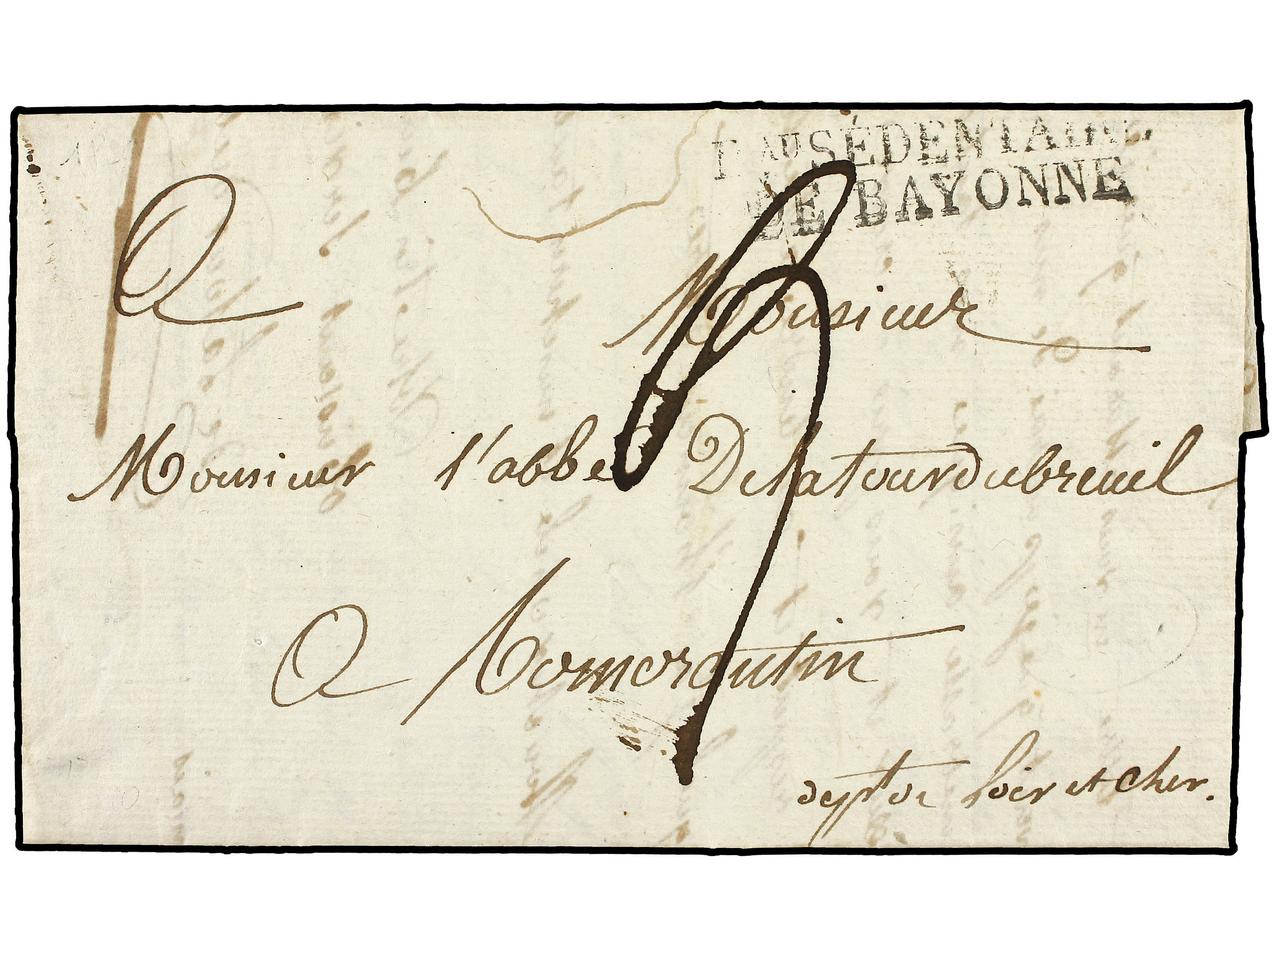 Bau SÉDENTAIRE
DE BAYONNE
A Monsieur
Monsieur l'abbé Delatourdubreuil
A Romorantin
dept de loir et Cher.